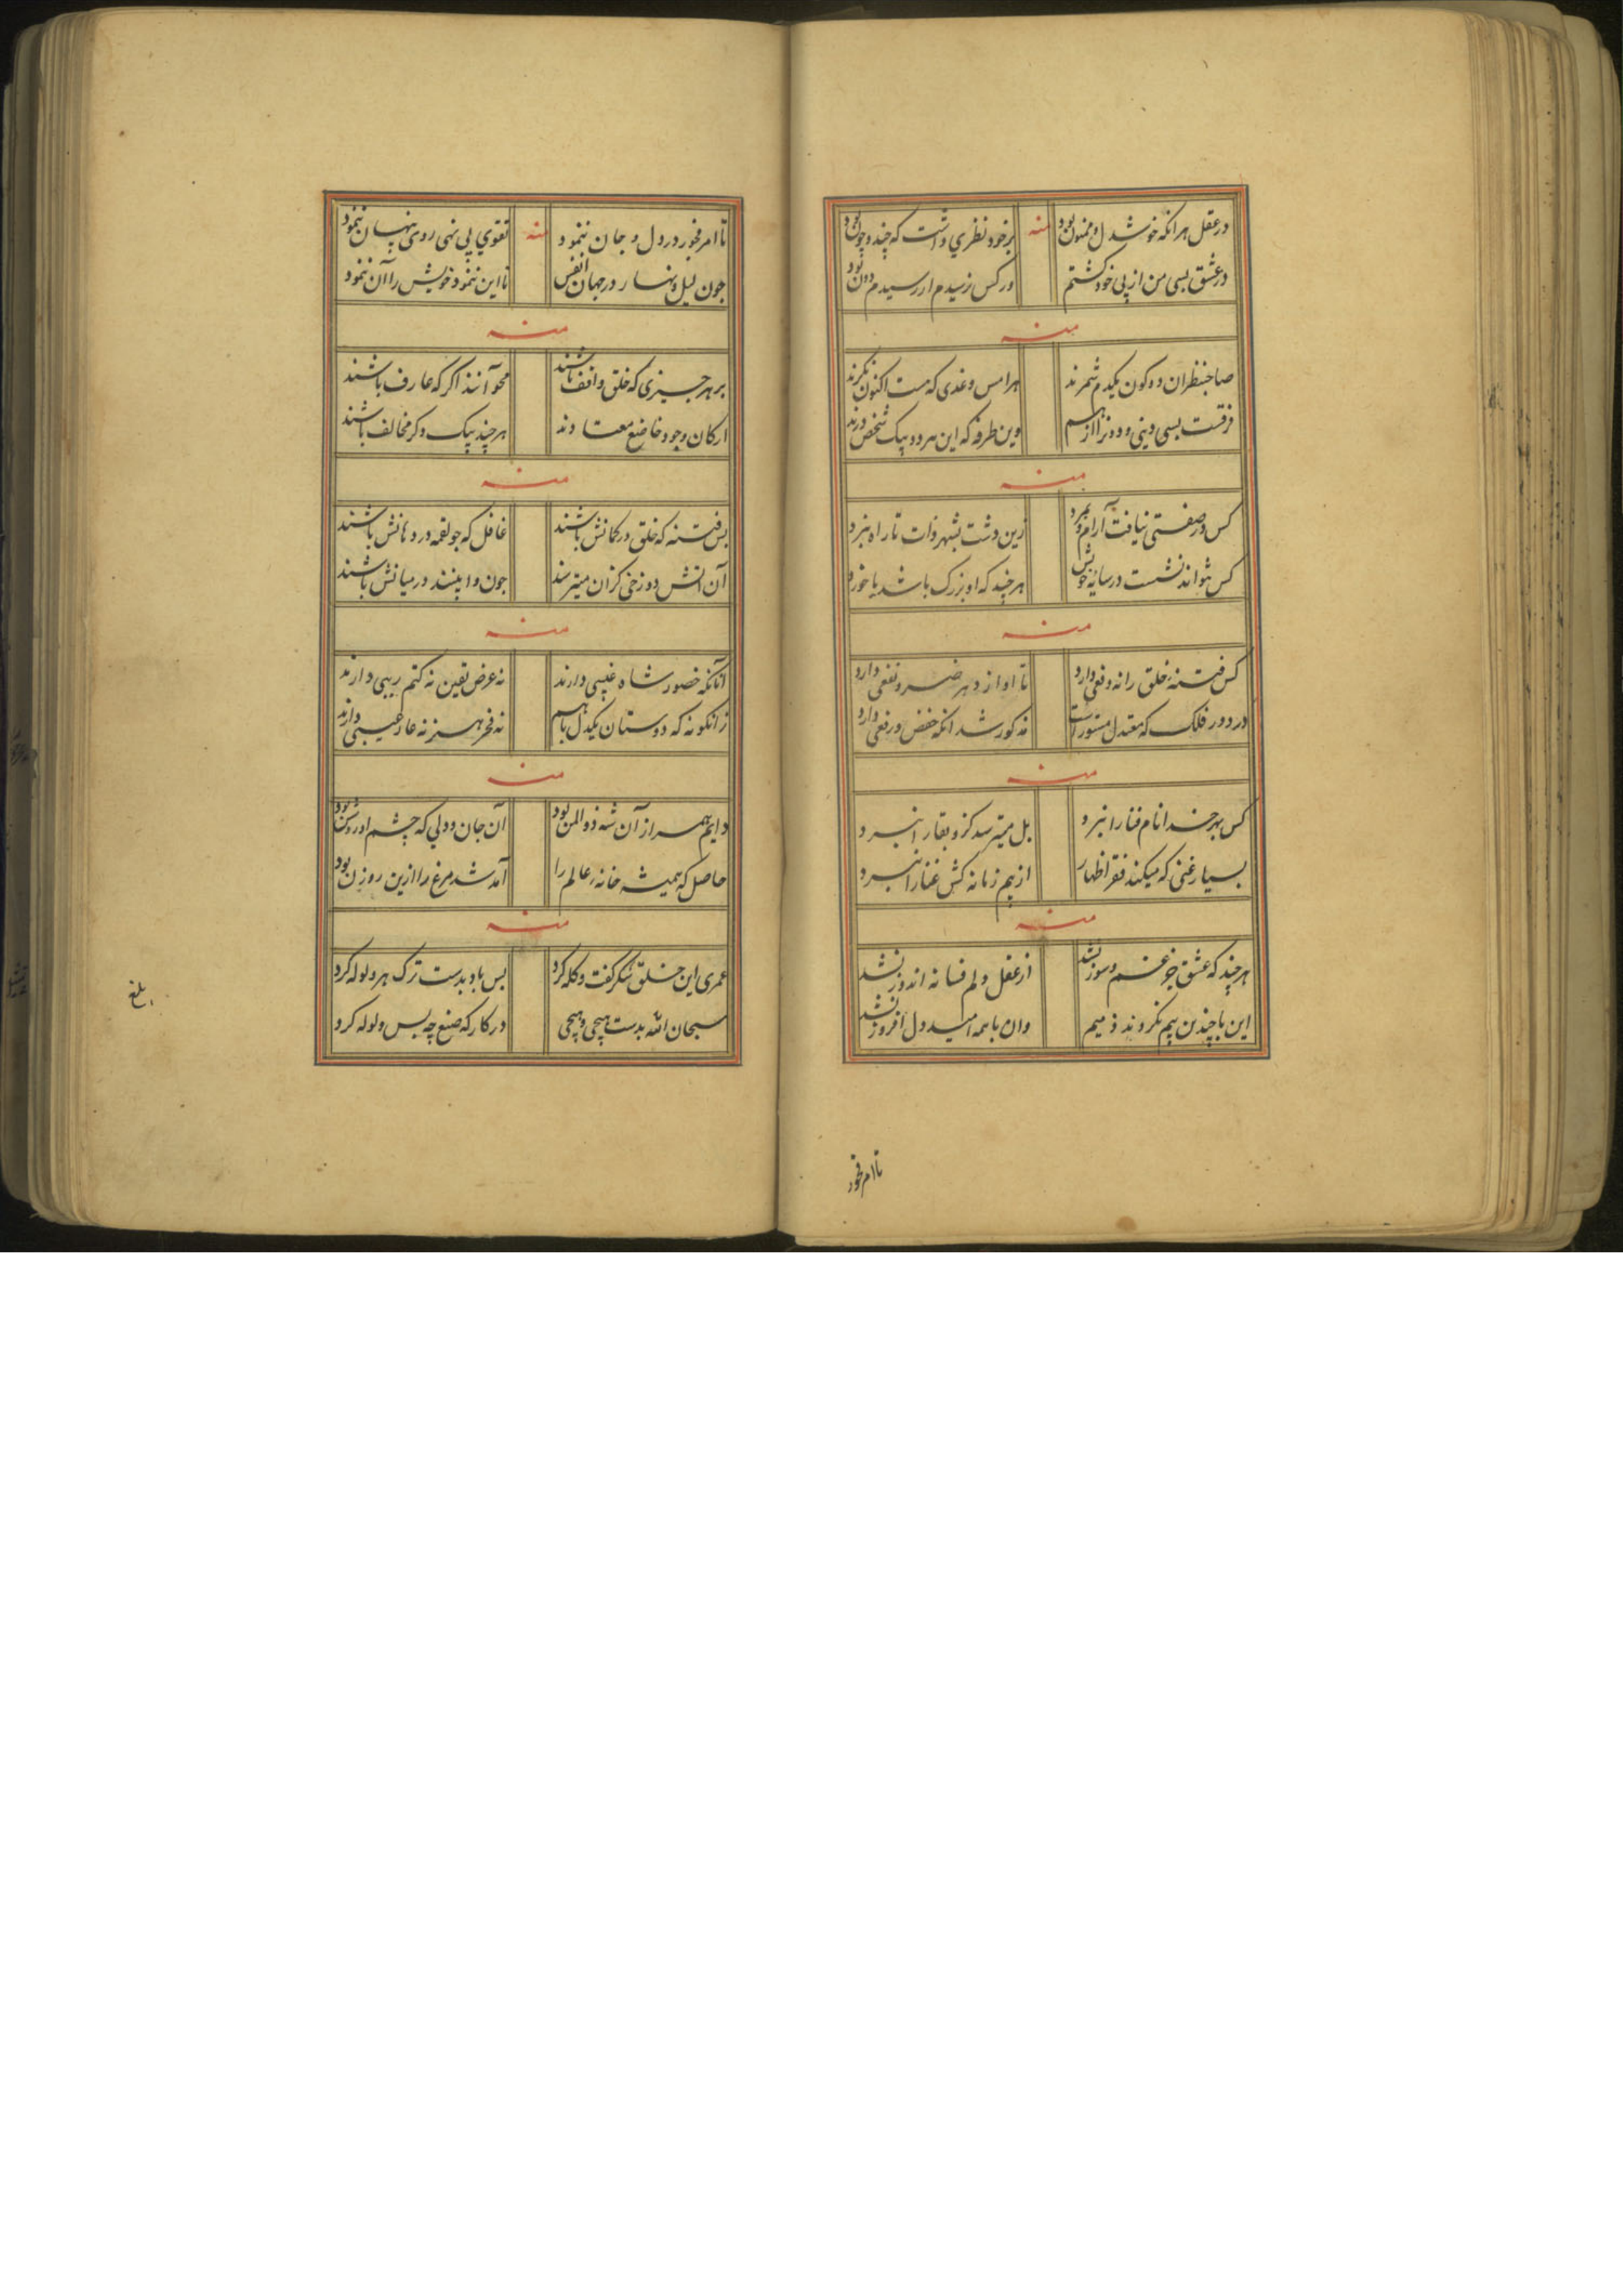 درعقل هر انکه خوشدل و ممنون بود
منه
بر خود نظری داشت که چند و چون بود
در عشق بسی من از پی خود کشتم
در کس نرسیدم ار رسیدم دون بود
منه
صاحبنظران دو کون یکدم شمرند
هر امس و غدی که هست اکنون نکرند
فرقست بسی دینی و دوزا از هم
وین طرفه که این هر دو بیک شخص درند
منه
کس در صفتی نیافت آرام و نمرد
زین دشت بشهر ذات تا راه نبرد
کس نتواند نشست در سایه خویش
هر چند که او بزرک باشد یا خورد
منه
کس فتنه خلق را نه وقعی دارد
تا او از دهر ضر و نفعی دارد
در دور فلک که معتدل مستور است
مذکور شد انکه خفض و رفعی دارد
منه
کس بهر خدا نام فنا را نبرد
بل میترسد کزو بقا را نبرد
بسیار غنی که میکند فقر اظهار
از بیم زمانه کش غنا را نبرد
منه
هر چند که عشق جز غم و سوز نشد
از عقل دلم فسانه اندوز نشد
این با چندین بیم نکروند ذمیم
وان با همه امید دل افروز نشد
تا امر فخور
تا امر فخور در دل و جان ننمود
منه
تقوی پی نهی روی پنهان ننمود
جون لیل و نهار در جهان انفس
تا این ننمود خویش را آن ننمود
منه
بر هر چیزی که خلق واقف باشند
محو آنند اکر که عارف باشند
ارکان وجود خاضع معتادند
هر چند بیک دکر مخالف باشند
منه
بس فتنه که خلق در کمانش باشند
غافل که جو لقمه در دهانش باشند
آن اتش دوزخی کزان میترسند
جون وا بینند در میانش باشند
منه
آنانکه حضور شاه غیبی دارند
نه عرض یقین نه کتم ریبی دارند
زانکونه که دوستان یکدل با هم
نه فخر هنر نه عار عیبی دارند
منه
دایم همراز آن شه ذوالمن بود
آن جان و دلی که چشم او روشن بود
حاصل که همیشه خانه عالم را
آمد شد مرغ را ازین روزن بود
منه
عمری این خلق شکر کفت و کله کرد
بس باد بدست ترک هر ولوله کرد
سبحان الله بدست هیچی و هیچی
در کارکه صنع چه بس ولوله کرد
بلغ